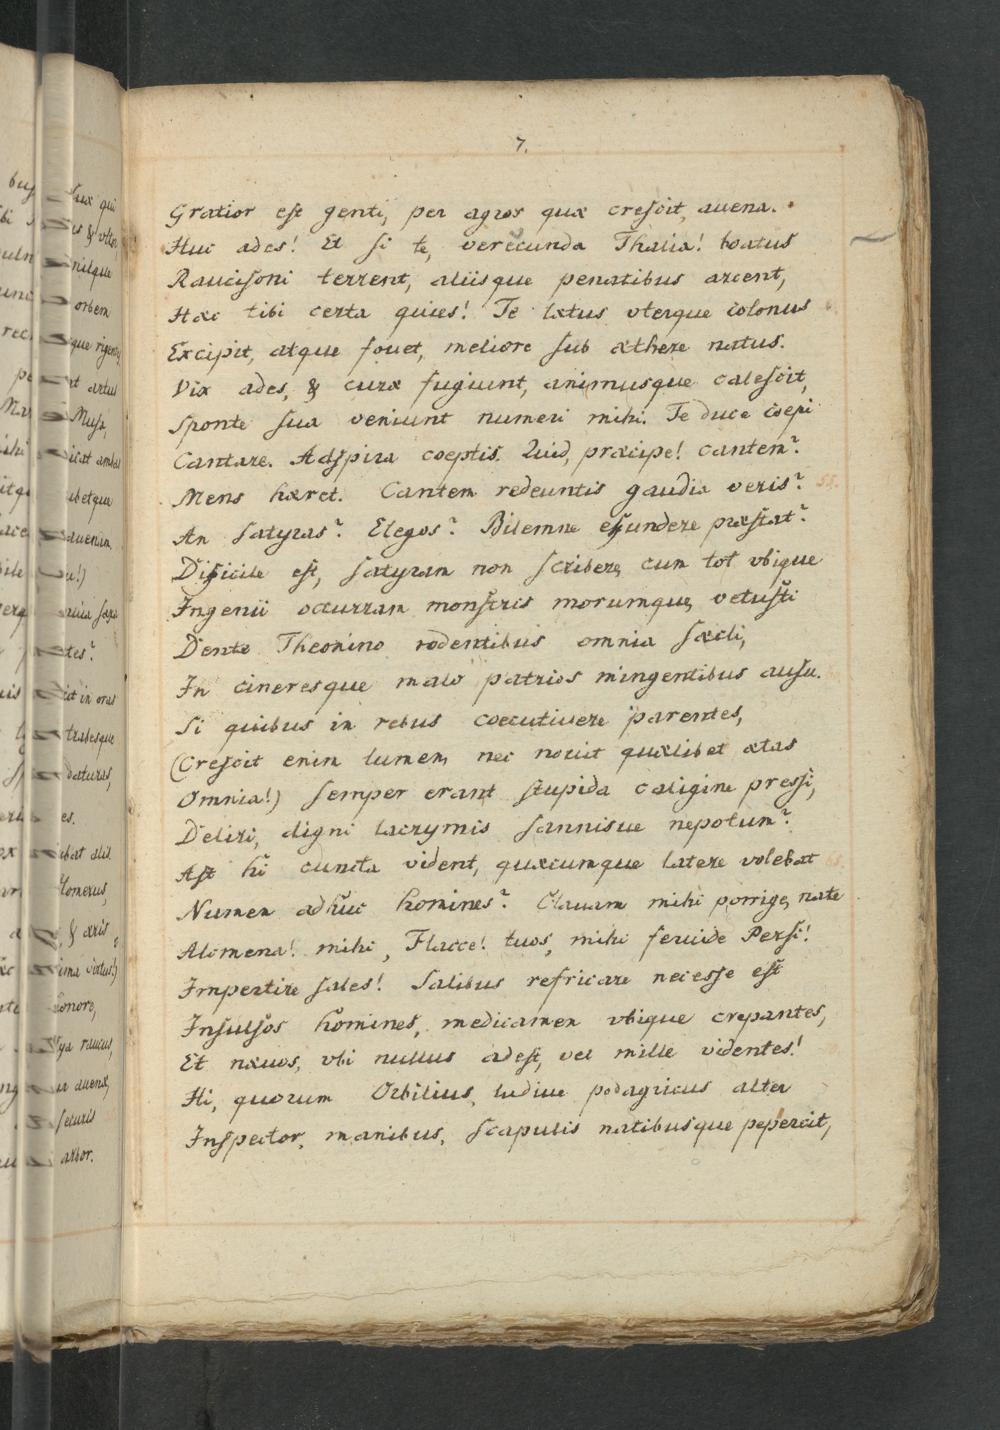 7.
Gratior est genti, per agros quæ crescit, auena.
Huc ades! Et si te, verecunda Thalia! boatus
Raucisoni terrent, aliisque penatibus arcent,
Hæc tibi certa quies! Te lætus vterque colonus
Excipit, atque fouet, meliore sub æthere natus.
Vix ades, & curæ fugiunt, animusque calescit,
Sponte sua veniunt numeri mihi. Te duce coepi
Cantare. Adspira coeptis. Quid, præcipe! cantem?
Mens hæret. Cantem redeuntis gaudia veris? 55.
An satyras? Elegos? Bilemne effundere præstat?
Difficile est, satyram non scribere, cum tot vbique
Ingenii occurram monstris morumque, vetusti
Dente Theonino rodentibus omnia sæcli,
In cineresque malo patrios mingentibus ausu.
Si quibus in rebus coecutiuere parentes,
(Crescit enim lumen, nec nouit quælibet ætas
Omnia!) semper erant stupida caligine pressi,
Deliri, digni lacrymis sannisue nepotum?
Ast hi cuncta vident, quæcumque latere volebat 65.
Numen adhuc homines? Clauam mihi porrige, nate
Alcmena! mihi, Flacce! tuos, mihi feruide Persi!
Impertire sales! Salibus refricare necesse est
Insulsos homines, medicamen vbique crepantes,
Et næuos, vbi nullus adest, vel mille videntes!
Hi, quorum Orbilius, ludiue podagricus alter
Inspector, manibus, scapulis natibusque pepercit,